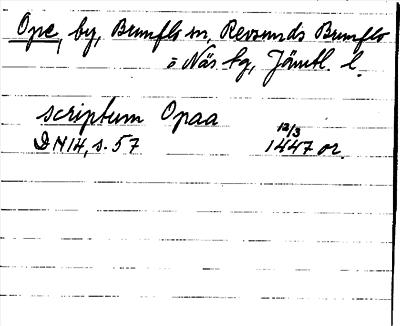 Ope, by, Brunflo sn, Revsunds Brunflo
o Näs tg, Jämtl. l.
scriptum Opaa 12/3
DN 14, s. 57 1447 or.